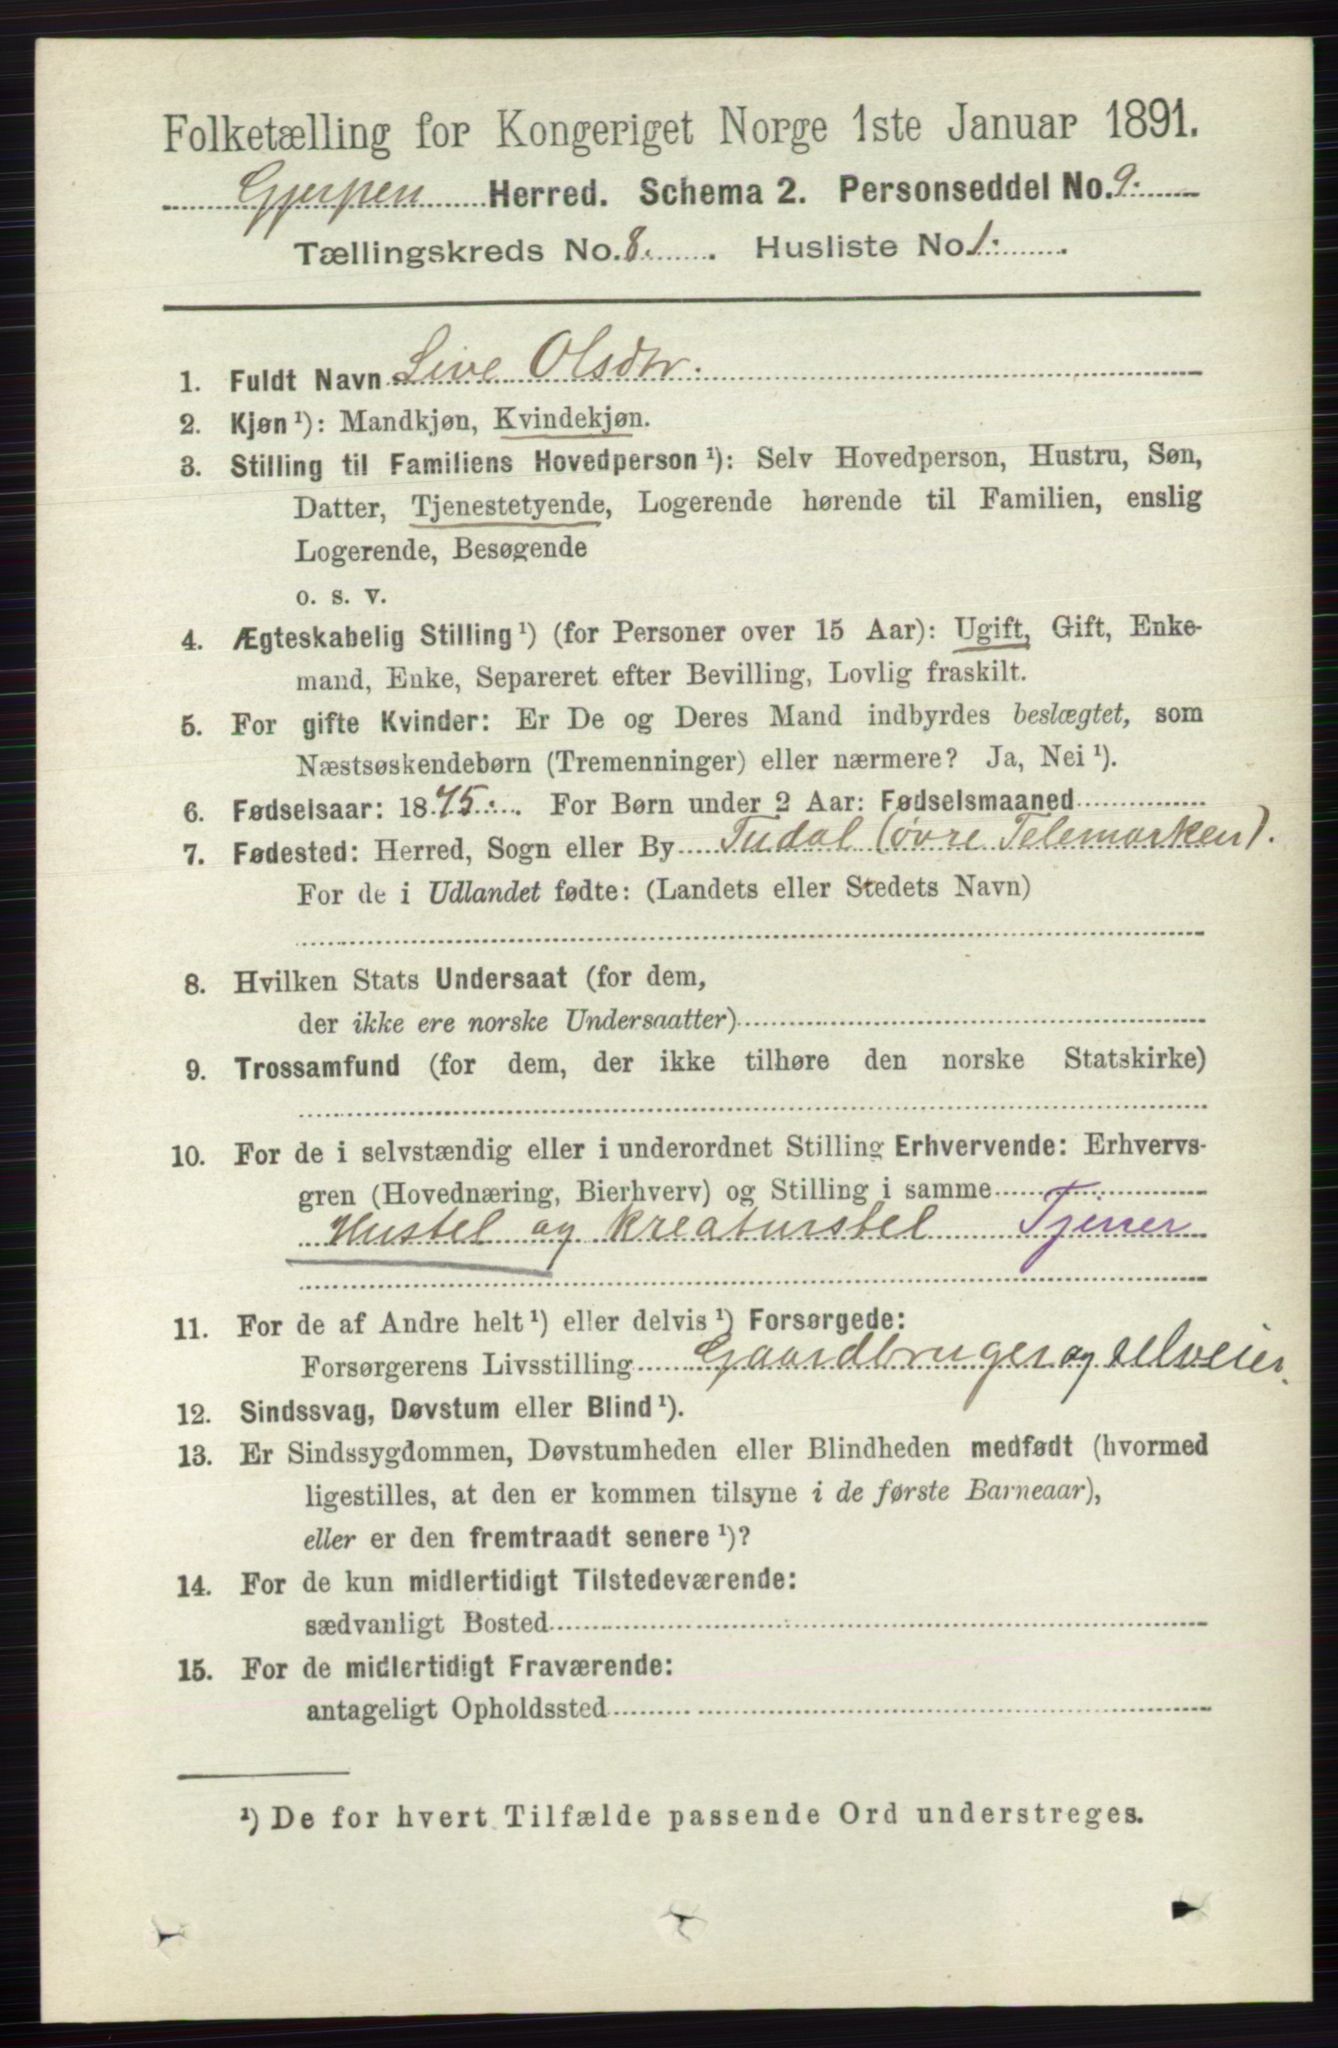 Folketælling for Kongeriget Norge 1ste Januar 1891.
Gjerpen Herred. Schema 2. Personseddel No. 9.
Tællingskreds No. 8. Husliste No. 1.
1. Fuldt Navn Live Olsdtr.
2. Kjøn ¹): Mandkjøn, Kvindekjøn.
3. Stilling til Familiens Hovedperson ¹): Selv Hovedperson, Hustru, Søn,
Datter, Tjenestetyende, Logerende hørende til Familien, enslig
Logerende, Besøgende
o. s. v.
4. Ægteskabelig Stilling ¹) (for Personer over 15 Aar): Ugift, Gift, Enke-
mand, Enke, Separeret efter Bevilling, Lovlig fraskilt.
5. For gifte Kvinder: Er De og Deres Mand indbyrdes beslægtet, som
Næstsøskendebørn (Tremenninger) eller nærmere? Ja, Nei ¹).
6. Fødselsaar: 1875. For Børn under 2 Aar: Fødselsmaaned
7. Fødested: Herred, Sogn eller By Tudal (øvre Telemarken).
For de i Udlandet fødte: (Landets eller Stedets Navn)
8. Hvilken Stats Undersaat (for dem,
der ikke ere norske Undersaatter)
9. Trossamfund (for dem, der ikke tilhøre den norske Statskirke)
10. For de i selvstændig eller i underordnet Stilling Erhvervende: Erhvervs-
gren (Hovednæring, Bierhverv) og Stilling i samme
Hustel og kreaturstel Tjener
11. For de af Andre helt ¹) eller delvis ¹) Forsørgede:
Forsørgerens Livsstilling Gaardbruger og selveier.
12. Sindssvag, Døvstum eller Blind ¹).
13. Er Sindssygdommen, Døvstumheden eller Blindheden medfødt (hvormed
ligestilles, at den er kommen tilsyne i de første Barneaar),
eller er den fremtraadt senere ¹)?
14. For de kun midlertidigt Tilstedeværende:
sædvanligt Bosted
15. For de midlertidigt Fraværende:
antageligt Opholdssted
¹) De for hvert Tilfælde passende Ord understreges.